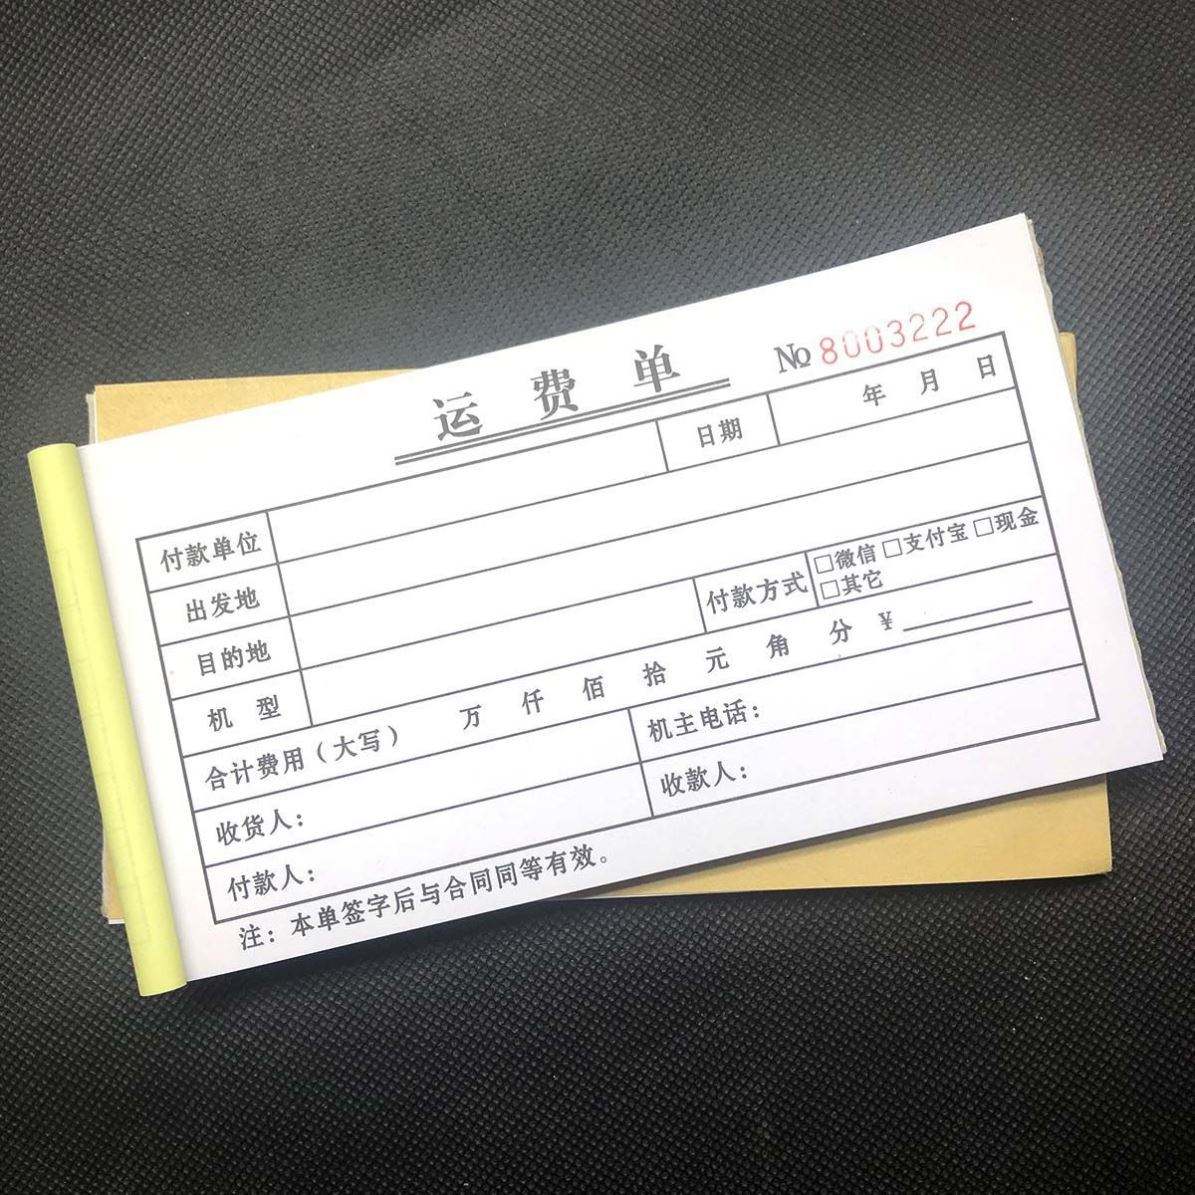 运费单
№ 8003222
付款单位 日期 年 月 日
出发地
目的地 付款方式 □微信 □支付宝 □现金
□其它
机 型
合计费用（大写） 万 仟 佰 拾 元 角 分 ¥
收货人： 机主电话：
付款人： 收款人：
注：本单签字后与合同同等有效。